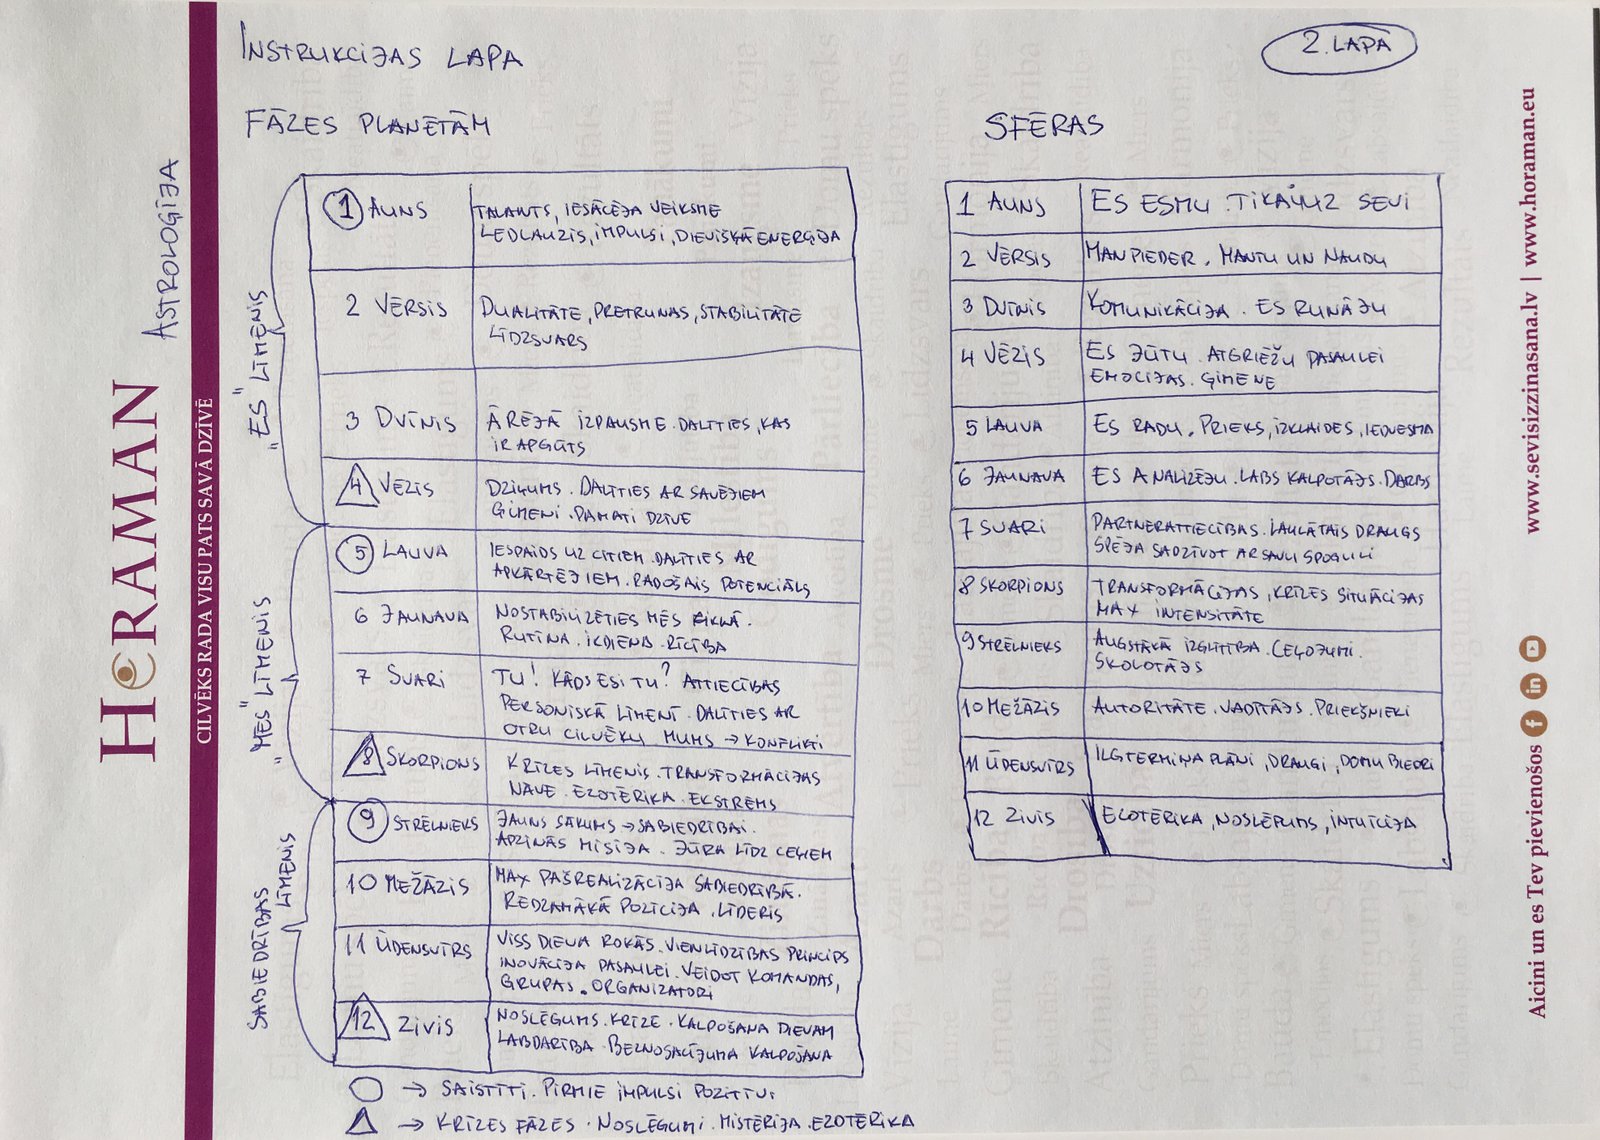 INSTRUKCIJAS LAPA
2. LAPA
ASTROLOĢIJA
HORAMAN
CILVĒKS RADA VISU PATS SAVĀ DZĪVĒ
FĀZES PLANĒTĀM
"ES" LĪMENIS
1 AUNS
TALANTS, IESĀCĒJA VEIKSME
LEDLAUZIS, IMPULSI, DIEVIŠĶĀ ENERĢIJA
2 VĒRSIS
DUALITĀTE, PRETRUNAS, STABILITĀTE
LĪDZSVARS
3 DVĪNIS
ĀRĒJĀ IZPAUSME. DALĪTIES, KAS
IR APGŪTS
4 VĒZIS
DZIĻUMS. DALĪTIES AR SAVĒJIEM
ĢIMENI. PAMATI DZĪVĒ
"MĒS" LĪMENIS
5 LAUVA
IESPAIDS UZ CITIEM. DALĪTIES AR
APKĀRTĒJIEM. RADOŠAIS POTENCIĀLS
6 JAUNAVA
NOSTABILIZĒTIES MĒS
RUTĪNA. IKDIENA. RĪCĪBA
7 SVARI
TU! KĀDS ESI TU? ATTIECĪBAS
PERSONISKĀ LĪMENĪ. DALĪTIES AR
OTRU CILVĒKU. MUMS → KONFLIKTI
8 SKORPIONS
KRĪZES LĪMENIS. TRANSFORMĀCIJAS
NĀVE. EZOTĒRIKA. EKSTRĒMS
SABIEDRĪBAS LĪMENIS
9 STRĒLNIEKS
JAUNS SĀKUMS → SABIEDRĪBAI.
APZINĀS MISIJA. JŪRA LĪDZ CEĻIEM
10 MEŽĀZIS
MAX PAŠREALIZĀCIJA SABIEDRĪBĀ.
REDZAMĀKĀ POZĪCIJA. LĪDERIS
11 ŪDENSVĪRS
VISS DIEVA ROKĀS. VIENLĪDZĪBAS PRINCIPS
INOVĀCIJA PASAULEI. VEIDOT KOMANDAS,
GRUPAS. ORGANIZATORI
12 ZIVIS
NOSLĒGUMS. KRĪZE. KALPOŠANA DIEVAM
LABDARĪBA. BEZNOSACĪJUMA KALPOŠANA
→ SAISTĪTI. PIRMIE IMPULSI POZITĪVI
→ KRĪZES FĀZES. NOSLĒGUMI. MISTĒRIJA. EZOTĒRIKA
SFĒRAS
1 AUNS
ES ESMU. TIKAI UZ SEVI
2 VĒRSIS
MAN PIEDER. MANTU UN NAUDU
3 DVĪNIS
KOMUNIKĀCIJA. ES RUNĀJU
4 VĒZIS
ES JŪTU. ATGRIEŽU PASAULEI
EMOCIJAS. ĢIMENE
5 LAUVA
ES RADU. PRIEKS, IZKLAIDES, IEDVESMA
6 JAUNAVA
ES ANALIZĒJU. LABS KALPOTĀJS. DARBS
7 SVARI
PARTNERATTIECĪBAS. LAULĀTAIS DRAUGS
SPĒJA SADZĪVOT AR SAVU SPOGULI
8 SKORPIONS
TRANSFORMĀCIJAS, KRĪZES SITUĀCIJAS
MAX INTENSITĀTE
9 STRĒLNIEKS
AUGSTĀKĀ IZGLĪTĪBA. CEĻOJUMI.
SKOLOTĀJS
10 MEŽĀZIS
AUTORITĀTE. VADĪTĀJS. PRIEKŠNIEKI
11 ŪDENSVĪRS
ILGTERMIŅA PLĀNI, DRAUGI, DOMUBIEDRI
12 ZIVIS
EZOTĒRIKA, NOSLĒPUMS, INTUĪCIJA
Aicini un es Tev pievienošos
www.sevisizzinasana.lv | www.horaman.eu